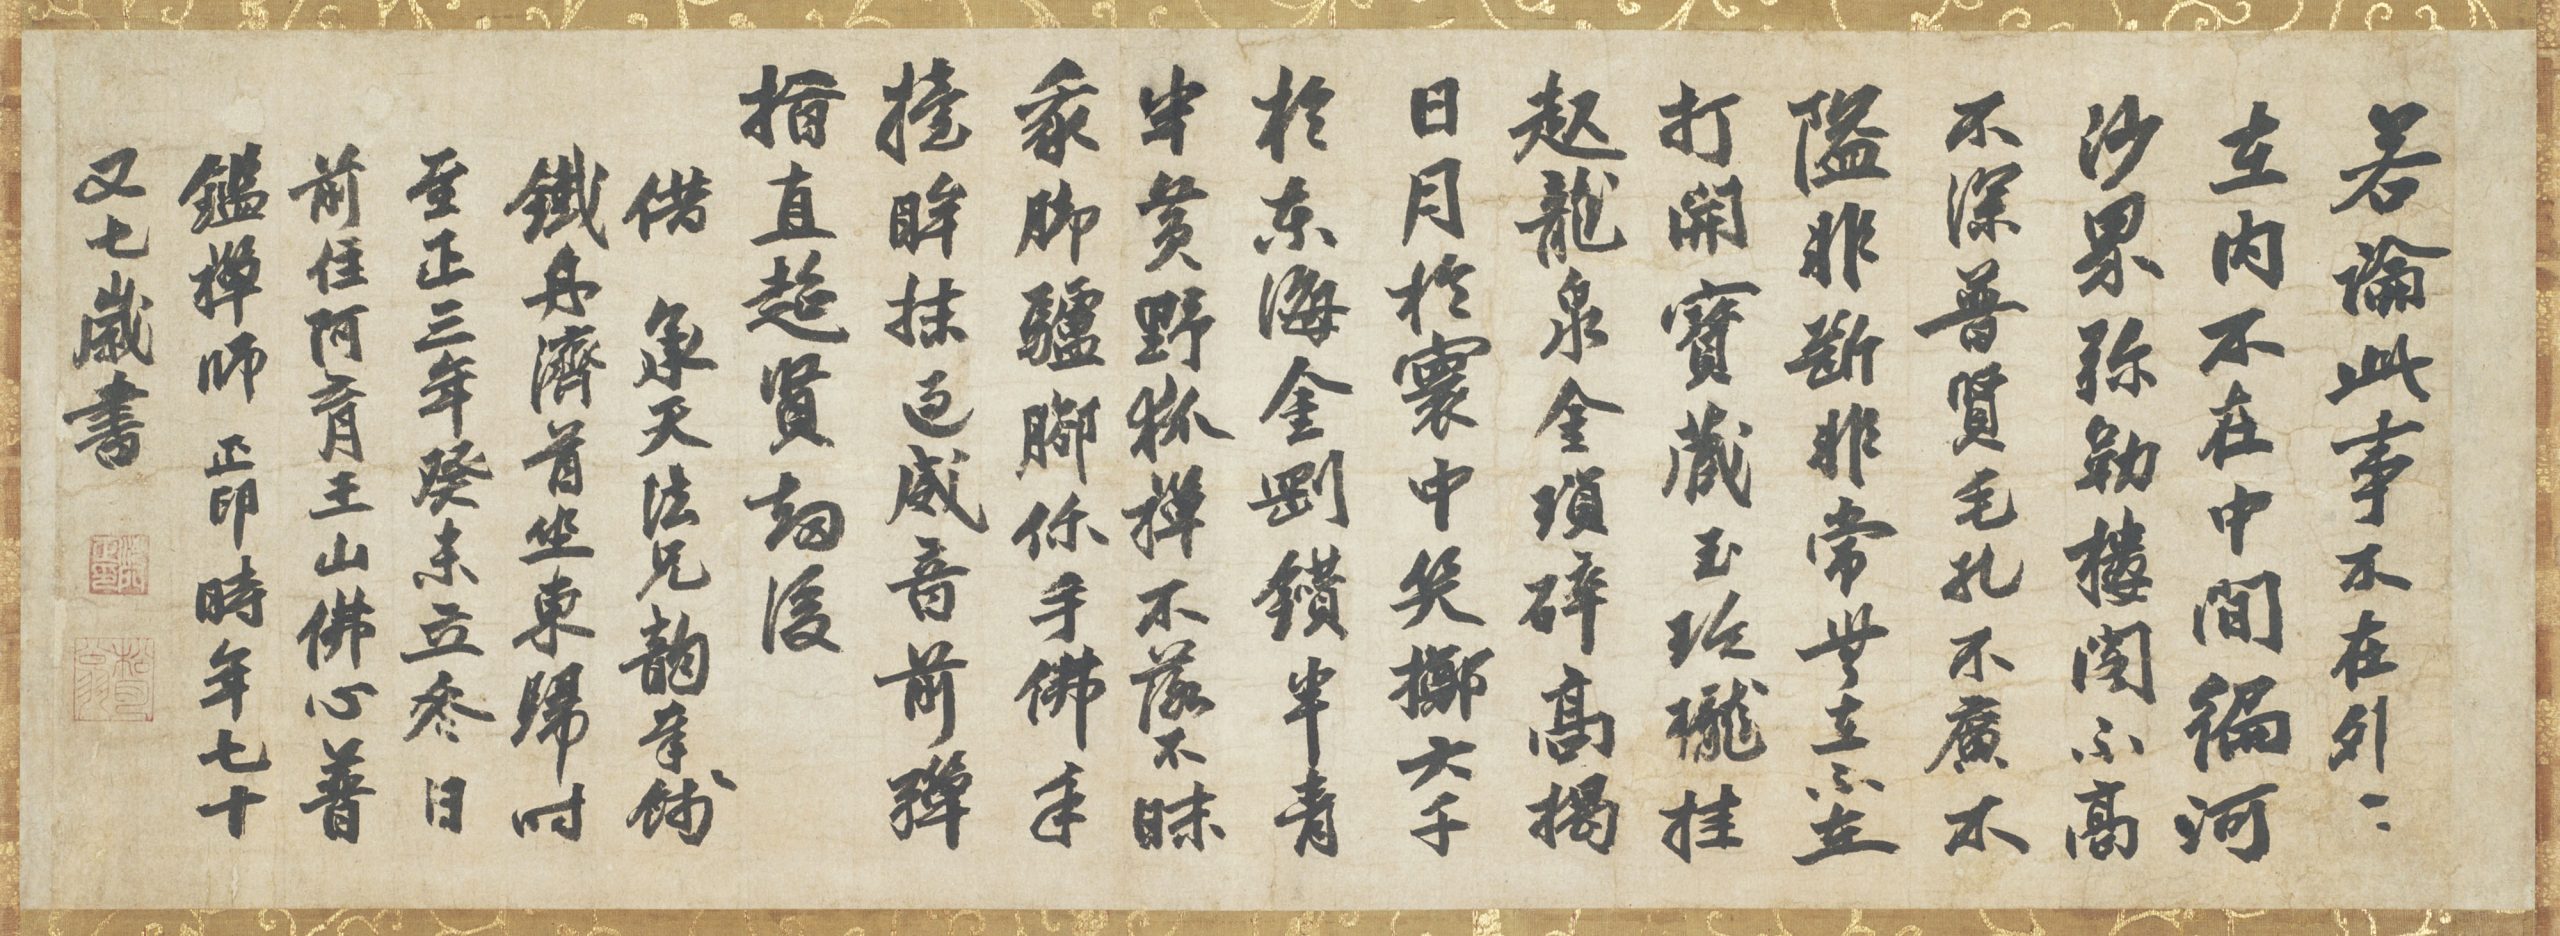 若論此事不在外〻
在内不在中間徧河
沙界弥勒樓閣不高
不深普賢毛孔不廣不
隘非斷非常無在不在
打開寶藏玉玲瓏挂
起龍泉金瑣碎高揭
日月於寰中笑擲大千
於東海金剛鑽半青
半黄野狐禪不落不昧
我脚驢脚你手佛手
擡眸抹過威音前彈
指直超賢劫後
借 承天法兄韵奉餞
鐵舟濟首坐東歸时
至正三年癸未立冬日
前住阿育王山佛心普
鑑禪師 正印時年七十
又七歲書